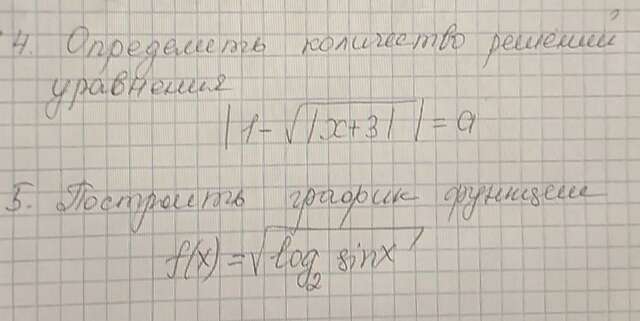 4. Определить количество решений
уравнения
|1-√|x+3||=a
5. Построить график функции
f(x)=√log₂ sinx